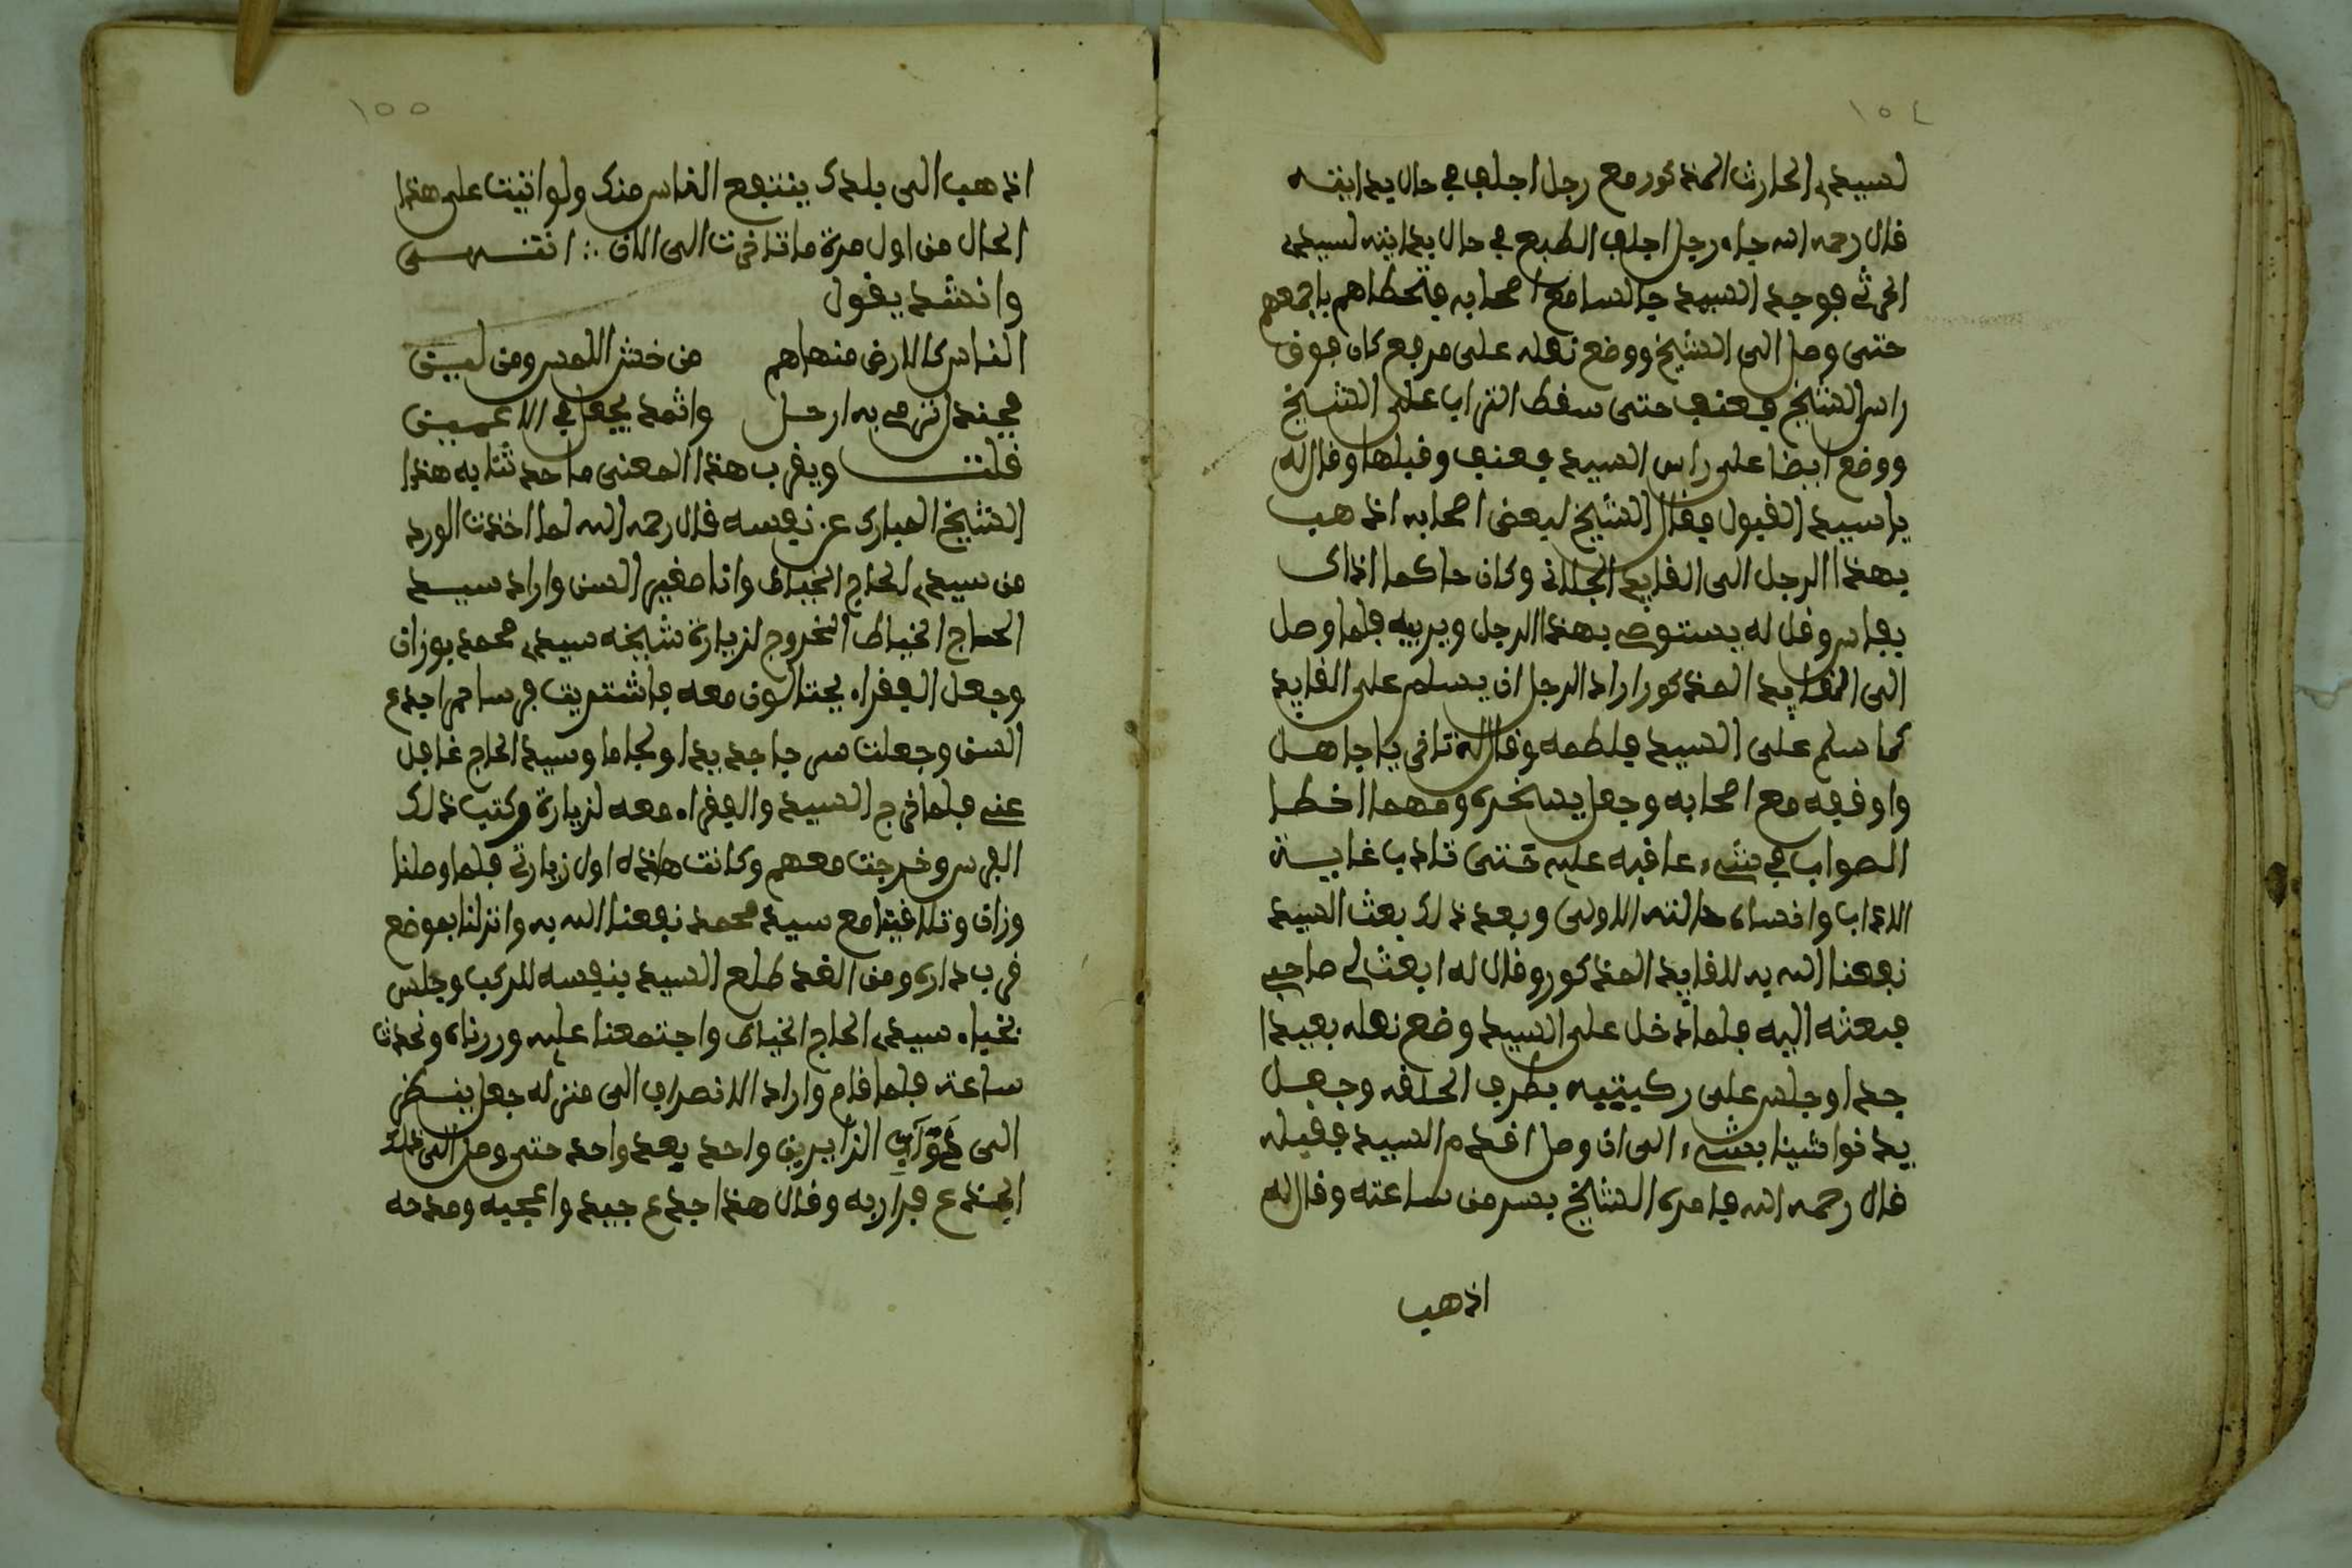 ١٥٤
لسيدي الحارث المذكور مع رجل اجلف في حال بدايته
قال رحمه الله جاء رجل اجلف الطبع في حال بدايته لسيدي
الحرثي فوجد السيد جالسا مع اصحابه فتخطاهم باجمعهم
حتى وصل الى الشيخ ووضع نعله على مرفع كان فوق
راس الشيخ بعنف حتى سقط التراب على الشيخ
ووضع ايضا على راس السيد بعنف وقبلها وقال له
يا سيد القبول فقال الشيخ لبعض اصحابه اذهب
بهذا الرجل الى القايد الجلاني وكان حاكما اذاك
بفاس وقل له يستوصي بهذا الرجل ويربيه فلما وصل
الى القايد المذكور اراد الرجل ان يسلم على القايد
كما سلم على السيد فلطمه وقال له تاخر يا جاهل
واوقفه مع اصحابه وجعل يسخره ومهما اخطا
الصواب في شيء عاقبه عليه حتى تادب غاية
الاداب وانساه حالته الاولى وبعد ذلك بعث السيد
نفعنا الله به للقايد المذكور وقال له ابعث لي صاحبي
فبعثه اليه فلما دخل على السيد وضع نعله بعيدا
جدا وجلس على ركبتيه بطرف الحلقة وجعل
يدنوا شيئا بشيء الى ان وصل اقدام السيد فقبله
قال رحمه الله فامره الشيخ بسر من ساعته وقال له
اذهب
١٥٥
اذهب الى بلدك ينتفع الناس منك ولو اتيت على هذا
الحال من اول مرة ما تاخرت الى الان ∴ انتهى
وانشد يقول
الناس كالارض منها هم من خشن اللمس ومن لين
فجندل ترمى به ارجل واثمد يجعل في الاعين
قلت ويقرب هذا المعنى ما حدثنا به هذا
الشيخ المبارك عن نفسه قال رحمه الله لما اخذت الورد
من سيدي الحاج الخياط وانا صغير السن واراد سيد
الحاج الخياط الخروج لزيارة شيخه سيدي محمد بوزان
وجعل الفقراء يحتالون معه فاشتريت فرسا حمرا جدع
السن وجعلت سرجا جديدا ولجاما وسيد الحاج غافل
عني فلما خرج السيد والفقراء معه لزيارة وكتب ذلك
الفرس وخرجت معهم وكانت هاذه اول زيارتي فلما وصلنا
وزان وتلاقينا مع سيد محمد نفعنا الله به وانزلنا بموضع
قرب داره ومن الغد طلع السيد بنفسه للركب وجلس
بخباء سيدي الحاج الخياط واجتمعنا عليه وزرناه وتحدث
ساعة فلما قام واراد الانصراف الى منزله جعل ينظر
الى دواب الزايرين واحد بعد واحد حتى وصل الى ذلك
الجذع فدار به وقال هذا جدع جيد واعجبه ومدحه